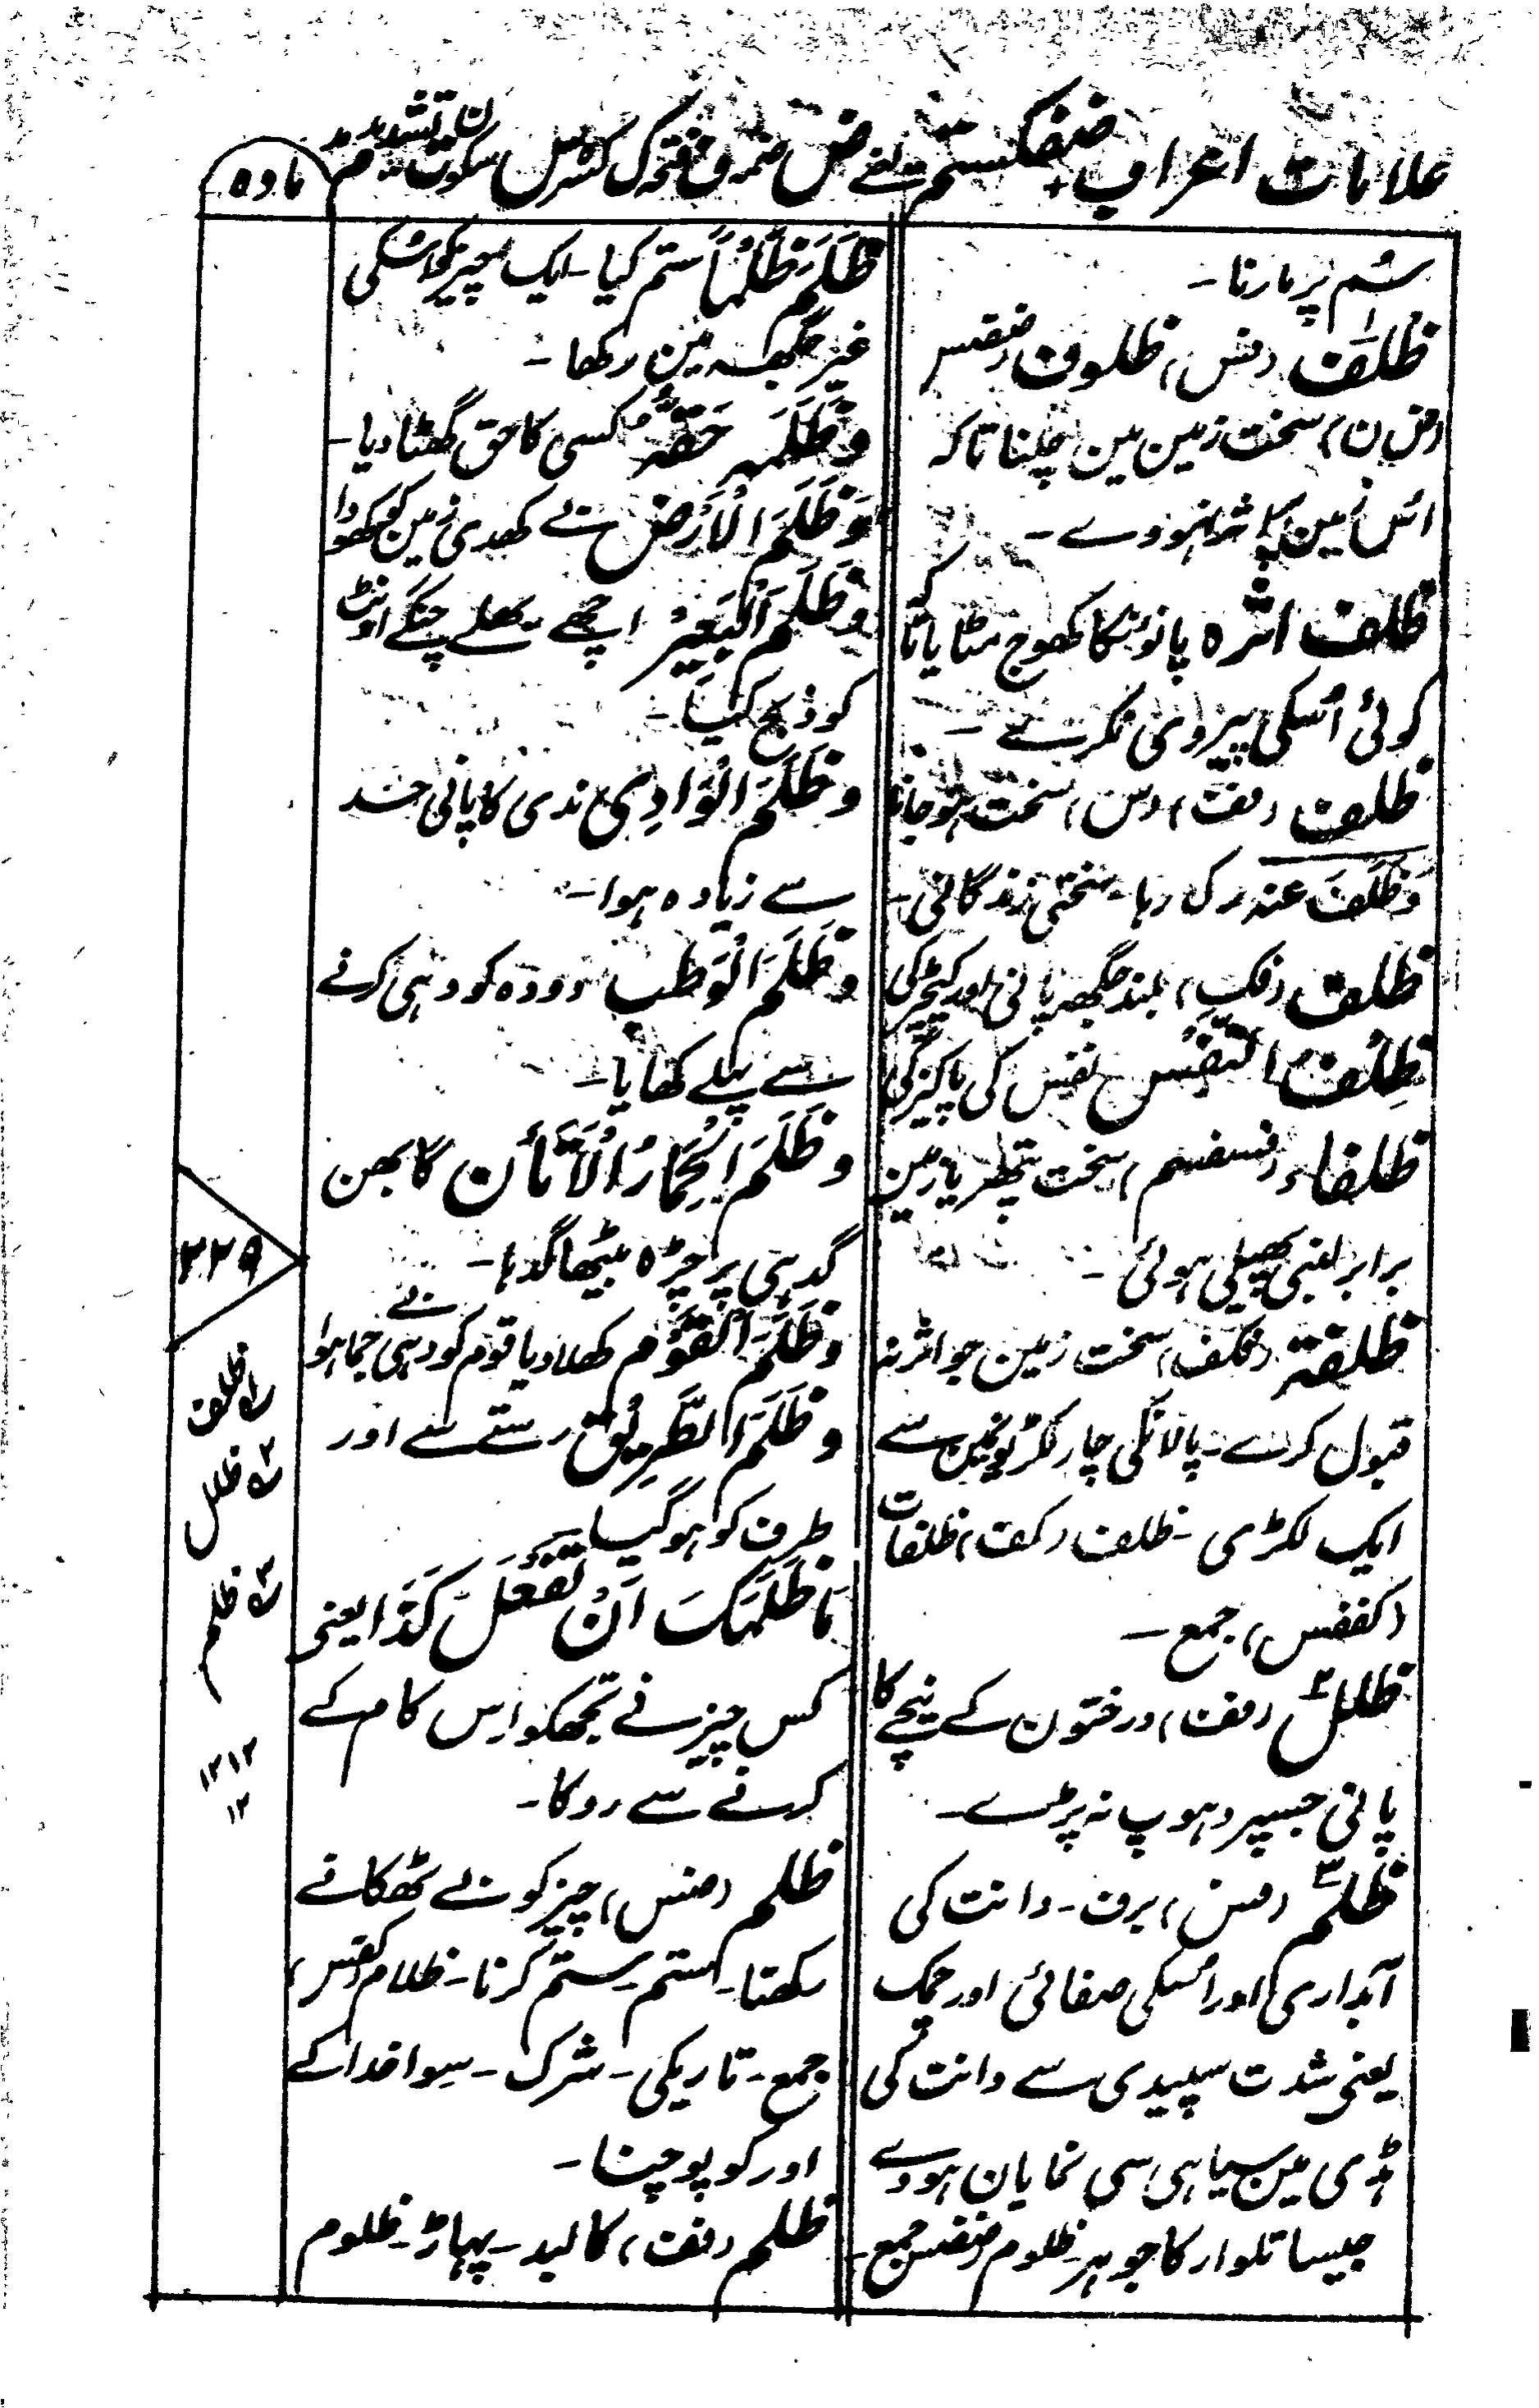 علامات اعراب ضفکستم یعنے ض ضمہ ف فتحہ ک کسر س سکون ت تشدید م مد
مادہ
سُم پر مارنا۔
ظَلَف (فس) ظلوف (ضقس
(فض ن) سخت زمین مین چلنا تاکہ
اُس زمین پر اثر نہووے۔
ظلف اثرہ پانوٗنکا کھوج مٹایا تاکہ
کوئی اُسکی پیروی نکرسے۔
ظلف (فف) (س) سخت ہوجانا
وَظَلَفَ عنہ رک رہا۔ سختی زندگانی۔
ظلف (فک) بلند جگہہ پانی اور کیچڑ کی
ظِلْفُ النَّفْس نفس کی پاکیزگی
ظلفاء (فسفسم) سخت پتھر یا زمین
برابر لنبی پھیلی ہوئی۔
ظلفتہ (فکف) سخت زمین جو اثر نہ
قبول کرے۔ پالانکی چار لکڑیونمین سے
ایک لکڑی۔ ظلف (کف) ظلفات
(کففس) جمع۔
ظلل (فف) درختون کے نیچے کا
پانی جسپر دہوپ نہ پڑے۔
ظلم (فس) برف۔ دانت کی
آبداری اور اُسکی صفائی اور چمک
یعنی شدت سپیدی سے دانت کی
ہڈی مین سیاہی سی نمایان ہووے
جیسا تلوار کا جوہر۔ ظلوم (ضفس) جمع۔
ظَلَمَ ظُلْمًا ستم کیا۔ ایک چیز کو اسکی
غیر جگہہ مین رکھا۔
وَظَلَمَہ حَقَّہٗ کسی کا حق گھٹا دیا۔
وَظَلَمَ الْاَرْضَ بے کھدی زمین کو کھودا
وَظَلَمَ الْبَعِیْرَ اچھے بھلے چنگے اونٹ کو
کو ذبح کیا۔
وَظَلَمَ الْوَادِی ندی کا پانی حد
سے زیادہ ہوا۔
وَظَلَمَ الْوَطْبَ دودہ کو دہی کرنے
سے پہلے کھایا۔
وَظَلَمَ الْحِمَارُ الْاَتَانَ گابھن
گدہی پر چڑہ بیٹھا گدہا۔
وَظَلَمَ الْقَوْمَ کھلا دیا قوم کو دہی بے جما ہوا
وَظَلَمَ الطَّرِیْقَ رستے سے اور
طرف کو ہو گیا۔
مَا ظَلَمَکَ اَنْ تَفْعَلَ کَذَا یعنی
کس چیز نے تجھکو اس کام کے
کرنے سے روکا۔
ظلم (ضس) چیز کو بے ٹھکانے
رکھنا۔ ستم۔ ستم کرنا۔ ظلام (کفس)
جمع۔ تاریکی۔ شرک۔ سوا خدا کے
اور کو پوجنا۔
ظلم (فف) کالبد۔ پہاڑ۔ ظلوم
۲۲۹
۱ ظلف
۲ ظلل
۳ ظلم
۱۲۱۲
۱۲